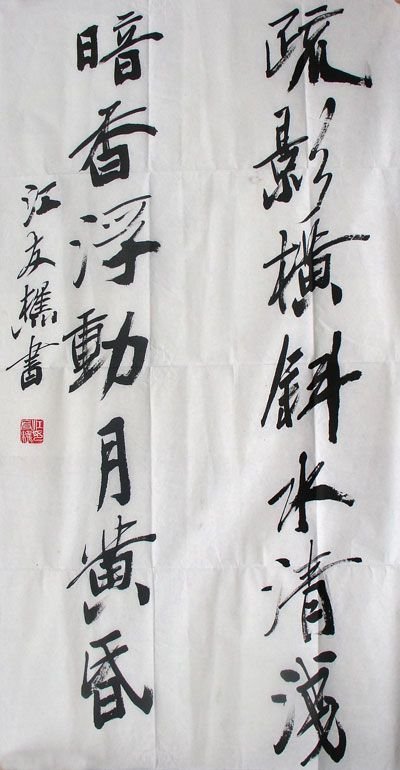 疏影橫斜水清淺
暗香浮動月黃昏
江友樵書